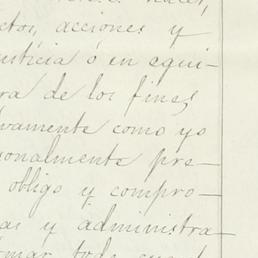 ctos, acciones y
usticia ó en equi-
ra de los fines
ivamente como yo
sonalmente pre-
obligo y compro-
as y administra-